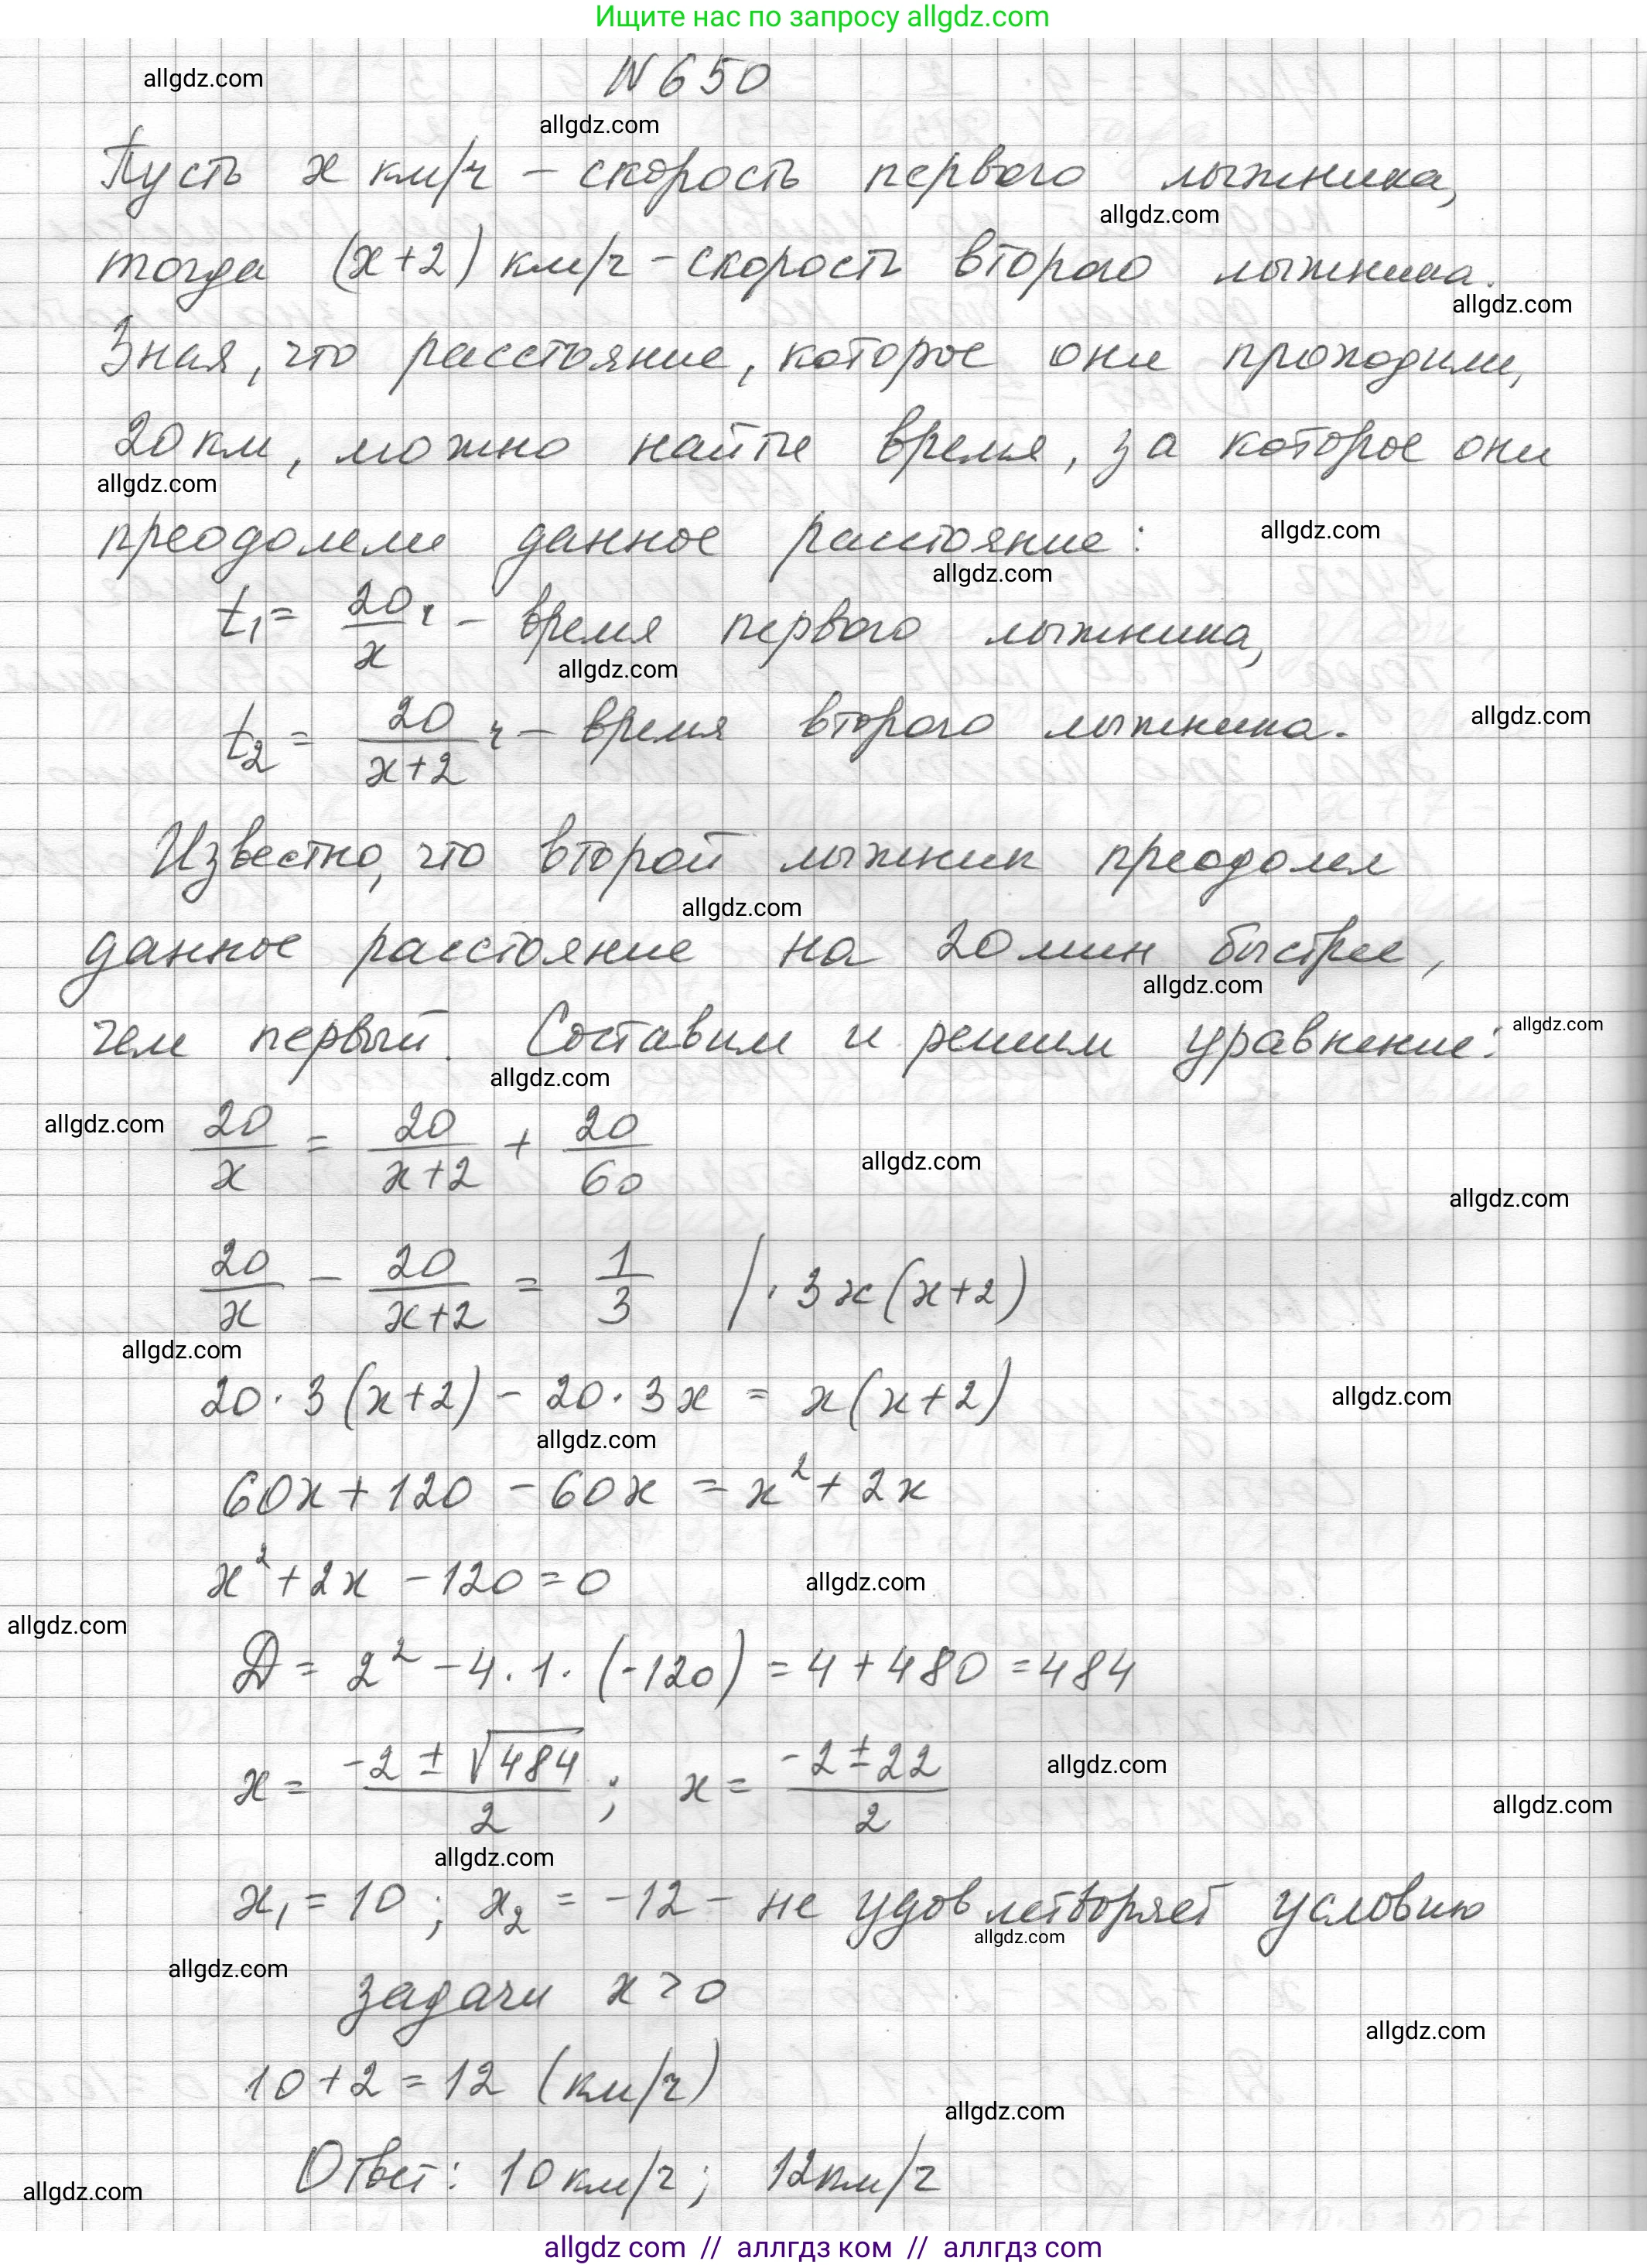 Ищите нас по запросу allgdz.com
allgdz.com
N 650
allgdz.com
Пусть x км/ч – скорость первого лыжника,
allgdz.com
тогда (x+2) км/ч – скорость второго лыжника.
allgdz.com
Зная, что расстояние, которое они проходили,
20 км, можно найти время, за которое они
allgdz.com
преодолели данное расстояние:
allgdz.com
allgdz.com
t₁ = 20/x ч – время первого лыжника,
allgdz.com
t₂ = 20/(x+2) ч – время второго лыжника.
allgdz.com
Известно, что второй лыжник преодолел
allgdz.com
данное расстояние на 20 мин быстрее,
allgdz.com
чем первый. Составим и решим уравнение:
allgdz.com
allgdz.com
allgdz.com
20/x = 20/(x+2) + 20/60
allgdz.com
allgdz.com
20/x – 20/(x+2) = 1/3 | · 3x(x+2)
allgdz.com
20 · 3(x+2) – 20 · 3x = x(x+2)
allgdz.com
allgdz.com
60x + 120 – 60x = x² + 2x
x² + 2x – 120 = 0
allgdz.com
allgdz.com
D = 2² – 4 · 1 · (-120) = 4 + 480 = 484
x = (-2 ± √484)/2 ; x = (-2 ± 22)/2
allgdz.com
allgdz.com
allgdz.com
x₁ = 10 ; x₂ = -12 – не удовлетворяет условию
allgdz.com
allgdz.com
задачи x > 0
allgdz.com
10 + 2 = 12 (км/ч)
allgdz.com
Ответ: 10 км/ч; 12 км/ч
allgdz.com
allgdz com // аллгдз ком // аллгдз com